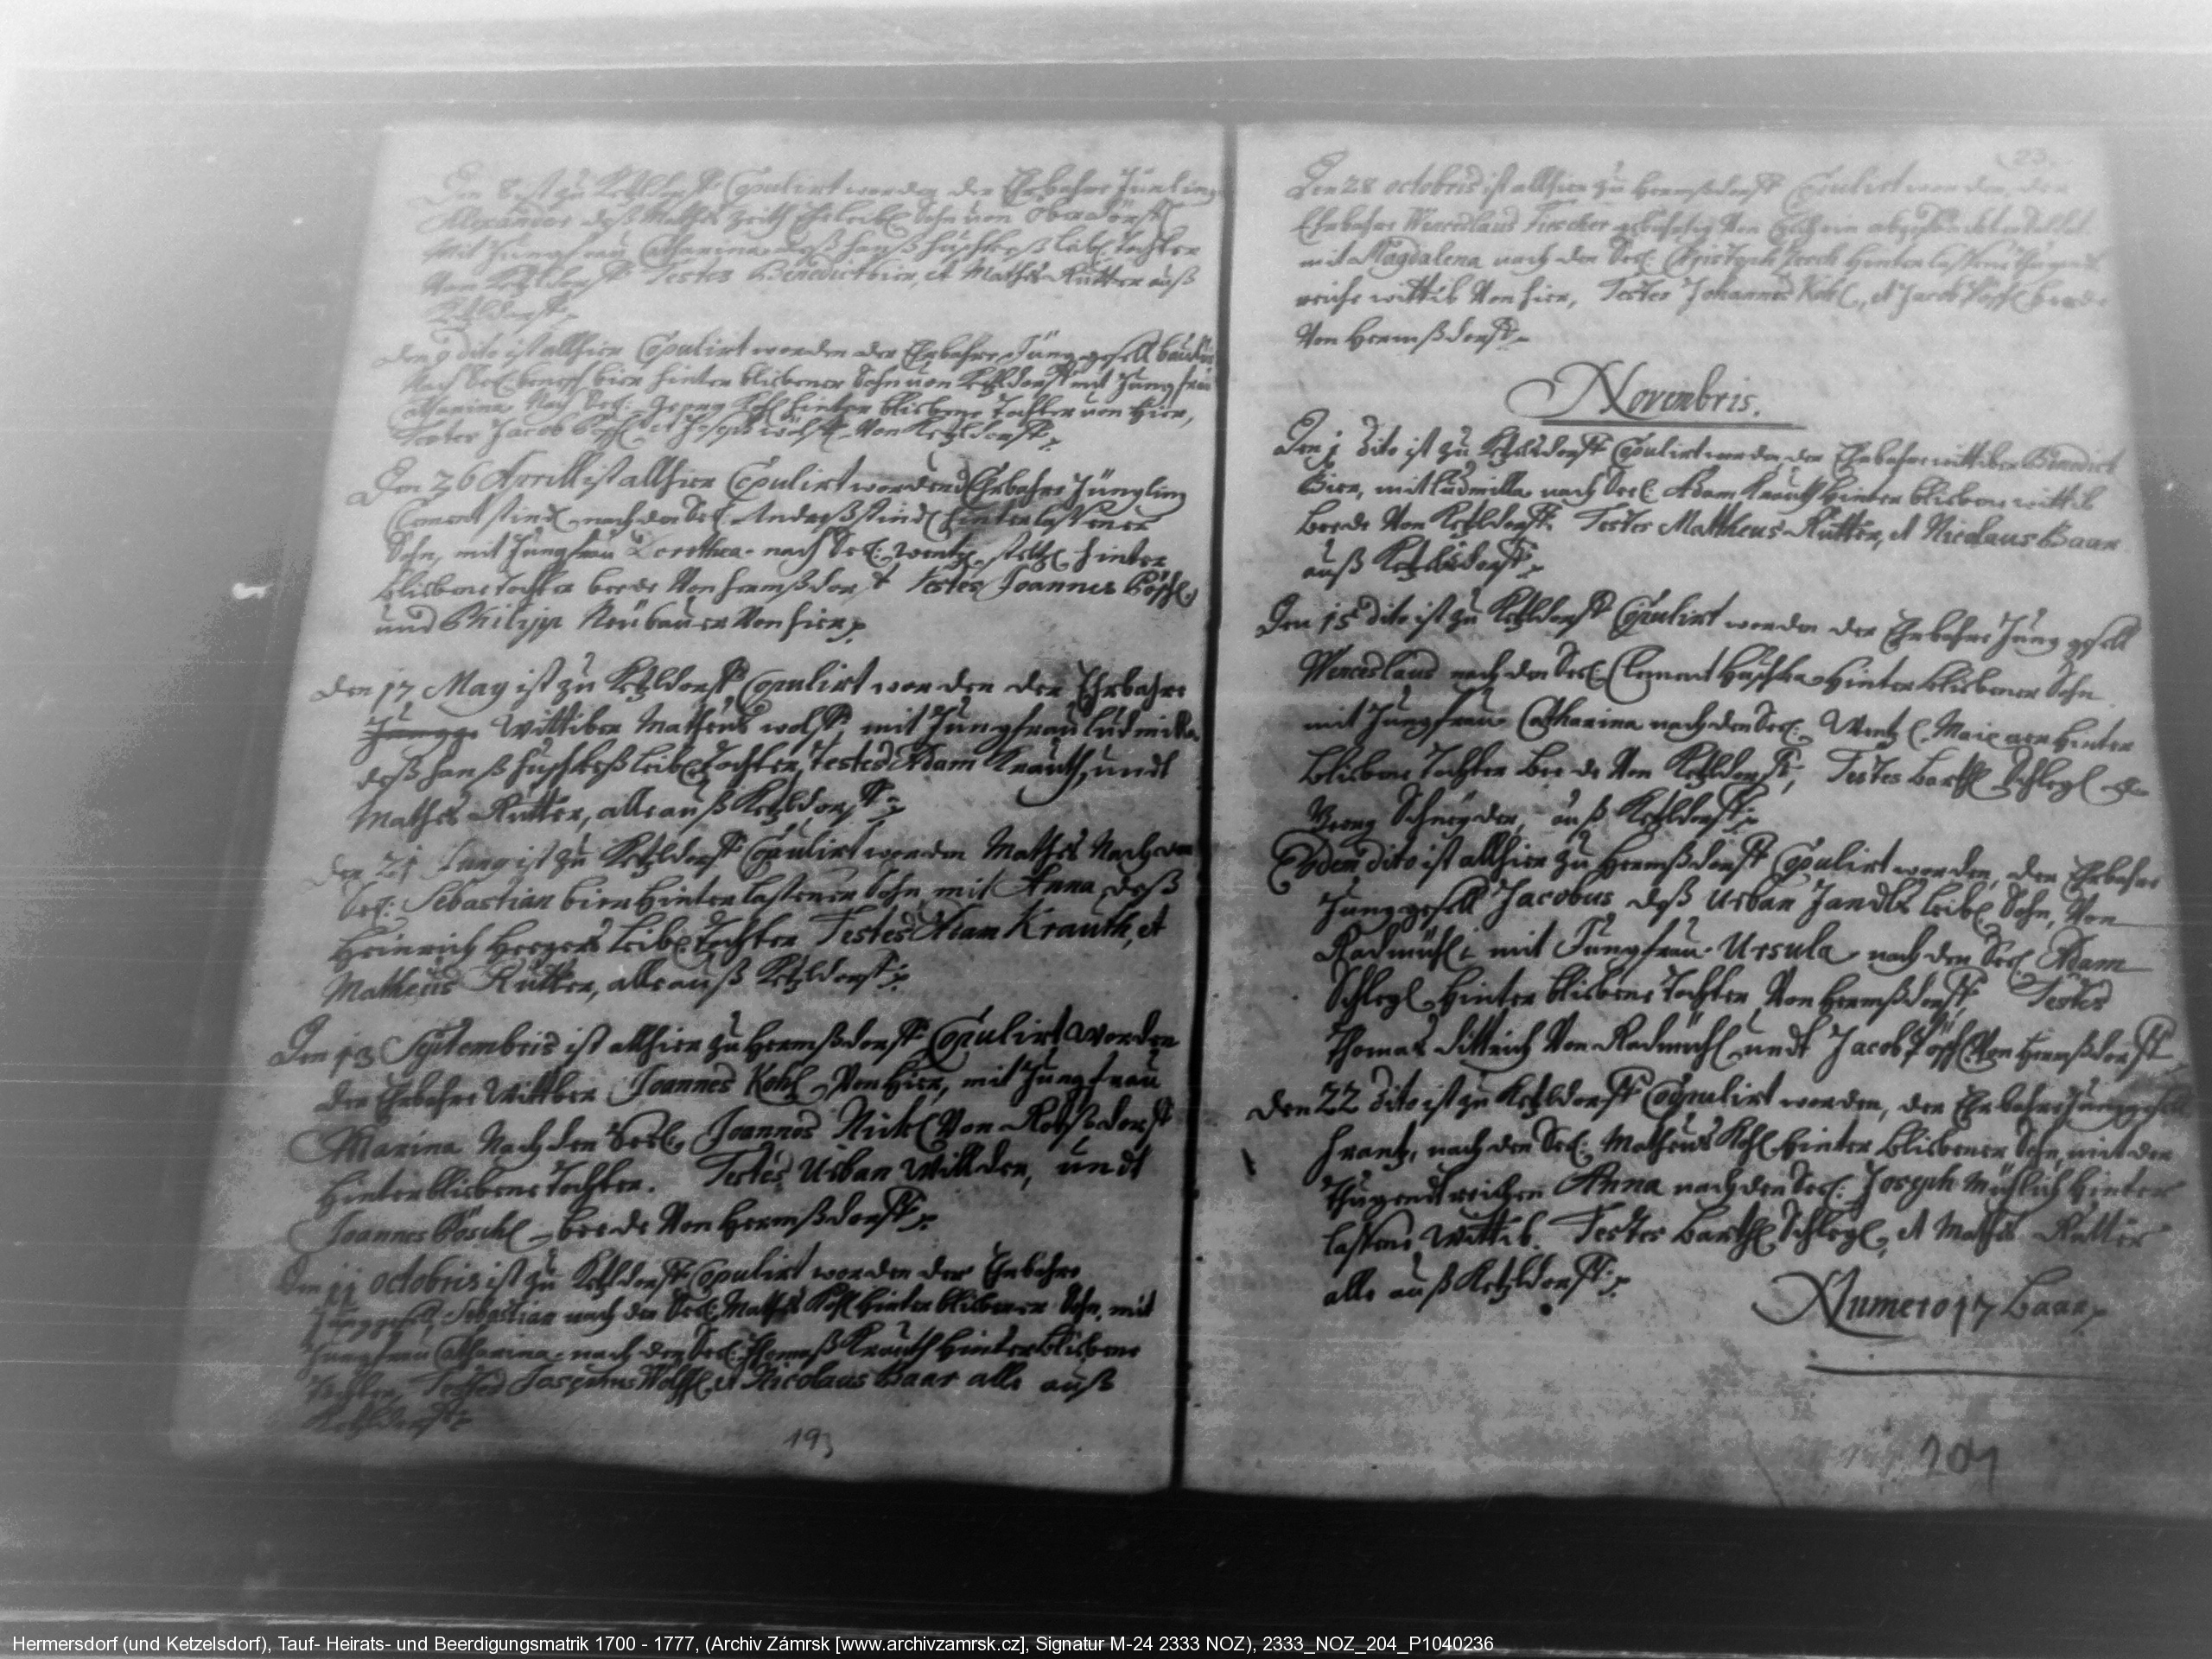 Den 8 ist zu Ketzldorff Copulirt worden der Ehrbahre Jüngling
Alexander deß Mathes Zeith Ehrleibl Sohn von Oberdörffl
Mit Jungfrau Catharina deß Hanß Huschkeß leibl Tochter
Von Ketzldorff Testes Benedict bier, et Mathes Rutter auß
Ketzldorff
Den 9 dito ist allhier Copulirt worden der Ehrbahre Jung gesell
Nach Seel: bier hinter blibener Sohn von Ketzldorff mit Jungfrau
Catharina Nach Seel: Georg Kohl hinter blibene Tochter von hier,
Testes Jacob Pöschl et Joseph Wölffl Von Ketzldorff
Den 26 Aprill ist allhier Copulirt worden d Ehrbahre Jüngling
Clement stindl nach den Seel: Andreß stindl hinterlassener
Sohn, mit Jungfrau Dorothea nach Seel: Wentzl hinter
blibene Tochter beede Von hermßdorff Testes Joannes Pöschl
und Philipp Neübauer Von hier
Den 17 May ist zu Ketzldorff Copulirt worden der Ehrbahre
Wittiber Matheus wolff, mit Jungfrau ludmilla
deß hanß huschkeß leibl Tochter, Testes Adam Krauth, undt
Mathes Rutter, alle auß Ketzldorff
den 21 ist zu Ketzldorff Copulirt worden Mathes Nach den
Seel: Sebastian bier hinterlassener Sohn, mit Anna deß
Heinrich Herzers leibl Tochter Testes Adam Krauth, et
Matheus Rutter, alle auß Ketzldorff
Den 13 Septembris ist allhier zu Hermßdorff Copulirt worden
der Ehrbahre Wittber Joannes Kohl Von hier, mit Jungfrau
Marina Nach den Seel: Joannes Nickl Von
hinterblibene Tochter. Testes Urban Willder, undt
Joannes Pöschl beede Von Hermßdorff
Den 11 octobris ist zu Ketzldorff Copulirt worden der Ehrbahre
Junggesell, Sebastian nach den Seel: Mathes Kohl hinterblibener Sohn, mit
Jungfrau Catharina nach den Seel: Thomaß Krauth hinterblibene
Tochter, Testes Josephus Wolffl, et Nicolaus Baar alle auß
Ketzldorff
193
23
Den 28 octobris ist allhier zu Hermßdorff Copulirt worden, der
Ehrbahre Wenceslaus Fiescher gebührtig Von
mit Magdalena nach den Seel: Christoph hinterlassene thugend
reiche wittib Von hier, Testes Johannes Kohl, et Jacob Pöschl beede
Von Hermßdorff
Novembris.
Den 1 dito ist zu Ketzldorff Copulirt worden der Ehrbahre wittiber Benedict
Bier, mit ludmilla nach Seel: Adam Krauth hinter blibene wittib
beede Von Ketzldorff Testes Mattheus Rutter, et Nicolaus Baar
auß Ketzldorff
Den 15 dito ist zu Ketzldorff Copulirt worden der Ehrbahre Jung gesell
Wenceslaus nach den Seel: Clement Huschka Hinter blibener Sohn
mit Jungfrau Catharina nach den Seel: Wentzl Maixner hinter
blibene Tochter beede Von Ketzldorff, Testes Barthl Schlegl
Georg Schneyder, auß Ketzldorff
Eodem dito ist allhier zu Hermßdorff Copulirt worden, der Ehrbahre
Junggesell Jacobus deß Urban Jandls leibl Sohn, Von
Radmühl mit Jungfrau Ursula nach den Seel: Adam
Schlegl hinter blibene Tochter Von Hermßdorff, Testes
Thomas dittrich Von Radmühl undt Jacob Pöschl Von Hermßdorff
Den 22 dito ist zu Ketzldorff Copulirt worden, der Ehrbahre Junggesell
Frantz, nach den Seel: Matheus Kohl hinter blibener Sohn, mit der
thugendtreichen Anna nach den Seel: Joseph Mühlich hinter
lassene Wittib. Testes Barthl Schlegl, et Mathes Rutter
alle auß Ketzldorff
Numero 17 Baar
204
Hermersdorf (und Ketzelsdorf), Tauf- Heirats- und Beerdigungsmatrik 1700 - 1777, (Archiv Zámrsk [www.archivzamrsk.cz], Signatur M-24 2333 NOZ), 2333_NOZ_204_P1040236